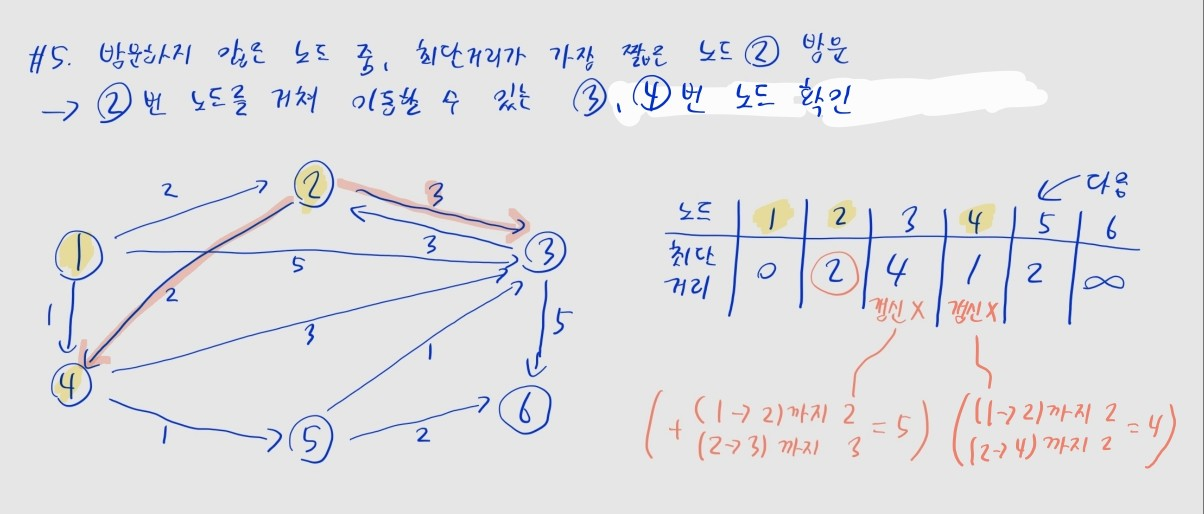 #5. 방문하지 않은 노드 중, 최단거리가 가장 짧은 노드 ② 방문
→ ②번 노드를 거쳐 이동할 수 있는 ③, ④번 노드 확인
2
2
3
1
5
3
3
2
1
3
5
4
1
1
5
2
6
다음
노드 1 2 3 4 5 6
최단거리 0 2 4 1 2 ∞
갱신 X 갱신 X
( + (1→2)까지 2 (2→3)까지 3 = 5 )
( (1→2)까지 2 (2→4)까지 2 = 4 )